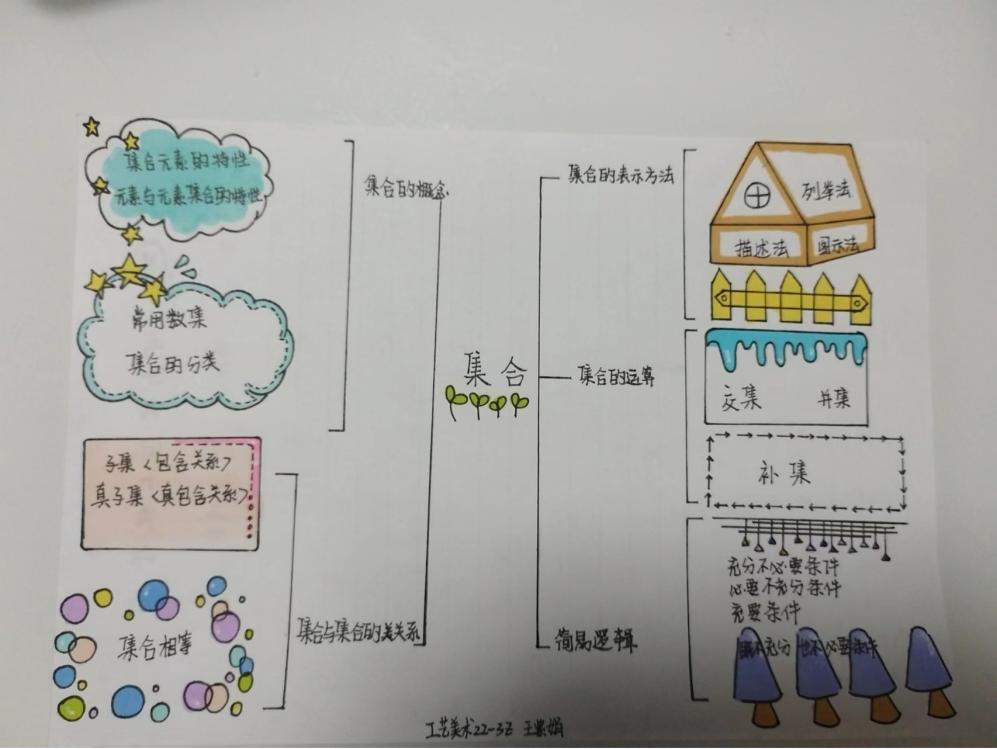 集合元素的特性
元素与元素集合的特性
常用数集
集合的分类
集合的概念
子集<包含关系>
真子集<真包含关系>
集合相等
集合与集合的关系
集合
集合的表示方法
列举法
描述法
图示法
集合的运算
交集 并集
补集
简易逻辑
充分不必要条件
必要不充分条件
充要条件
充分 也不必要条件
工艺美术22-3Z